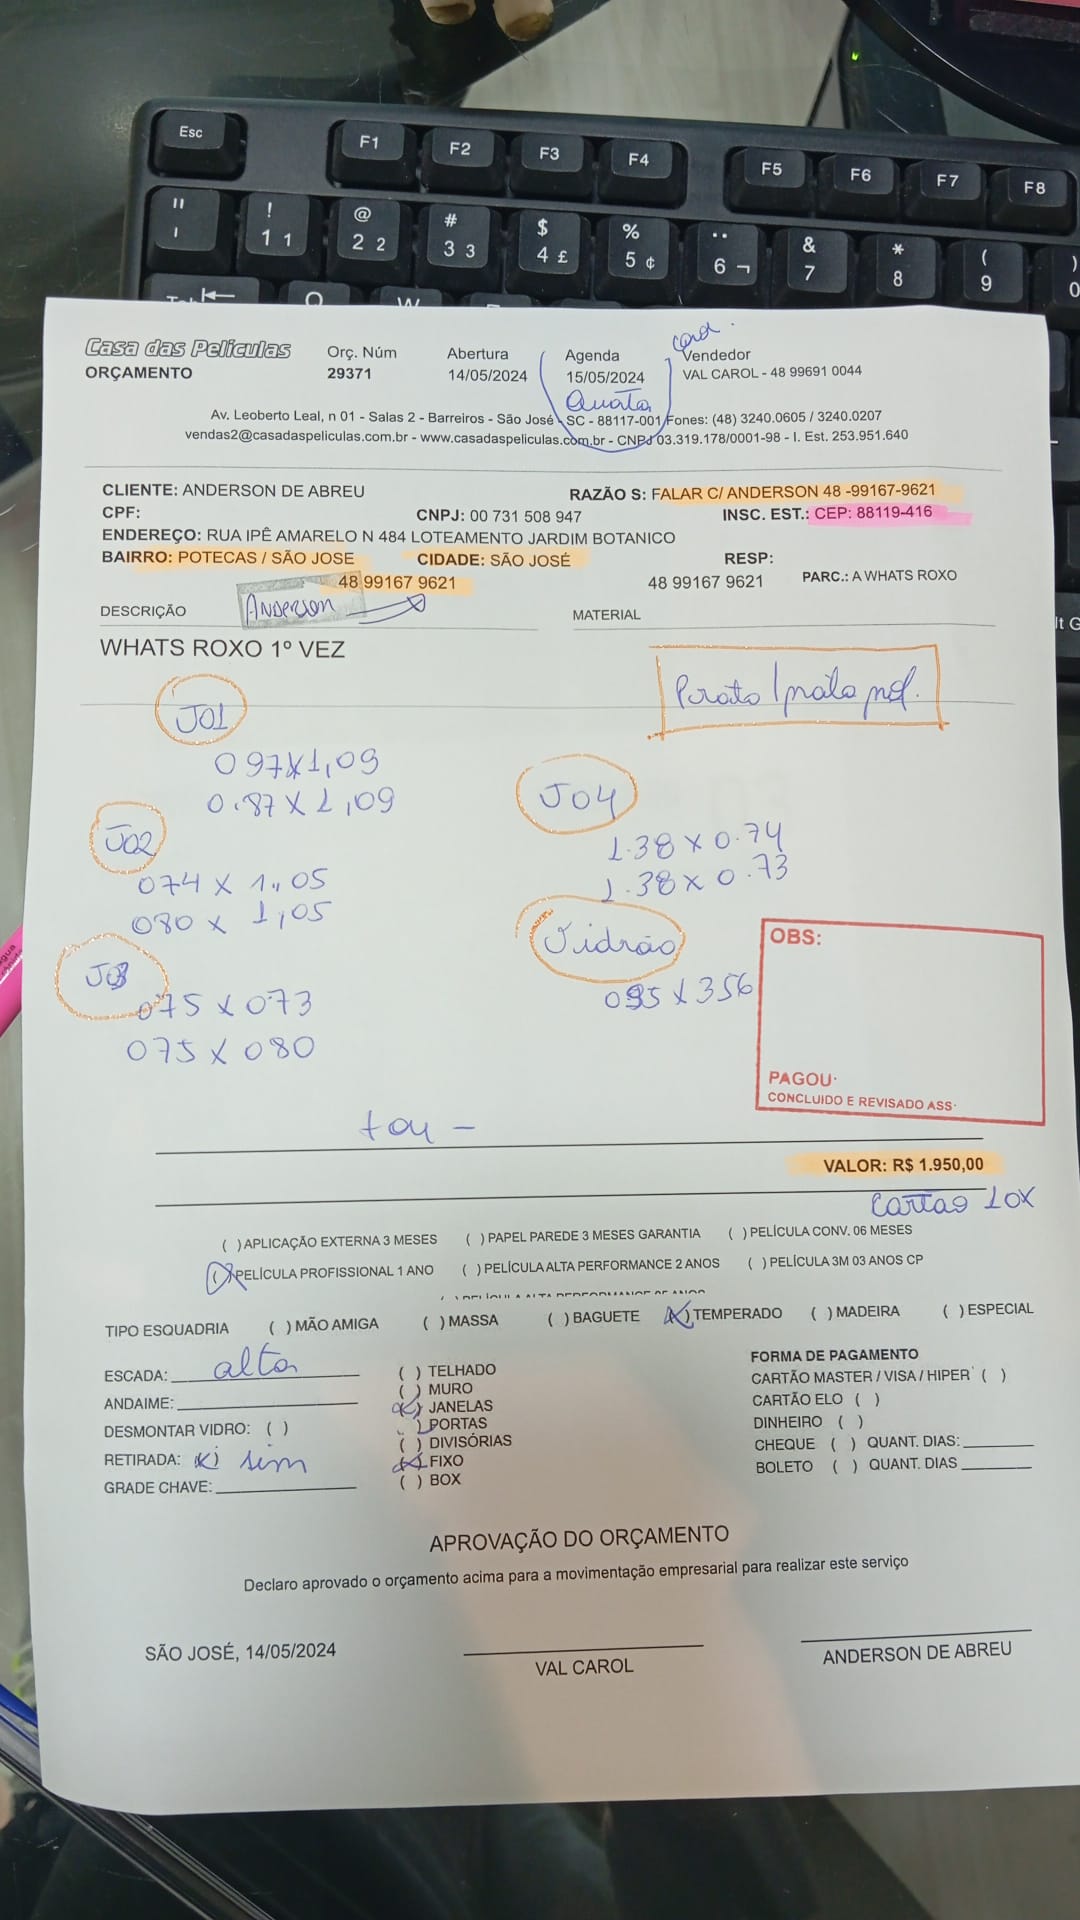 Esc F1 F2 F3 F4 F5 F6 F7 F8
" ! @ # $ % ¨ & * ( )
' 1 1 2 2 3 3 4 £ 5 ¢ 6 ¬ 7 8 9 0
Casa das Películas
ORÇAMENTO
Orç. Núm
29371
Abertura
14/05/2024
Agenda
15/05/2024
Quarta
Vendedor
VAL CAROL - 48 99691 0044
Av. Leoberto Leal, n 01 - Salas 2 - Barreiros - São José - SC - 88117-001 Fones: (48) 3240.0605 / 3240.0207
vendas2@casadaspeliculas.com.br - www.casadaspeliculas.com.br - CNPJ 03.319.178/0001-98 - I. Est. 253.951.640
CLIENTE: ANDERSON DE ABREU RAZÃO S: FALAR C/ ANDERSON 48 -99167-9621
CPF: CNPJ: 00 731 508 947 INSC. EST.: CEP: 88119-416
ENDEREÇO: RUA IPÊ AMARELO N 484 LOTEAMENTO JARDIM BOTANICO
BAIRRO: POTECAS / SÃO JOSE CIDADE: SÃO JOSÉ RESP:
48 99167 9621 48 99167 9621 PARC.: A WHATS ROXO
DESCRIÇÃO Anderson MATERIAL
WHATS ROXO 1º VEZ
J01
097x1,09
0.87 x 1,09
J02
074 x 1,05
080 x 1,05
J03
075 x 073
075 x 080
J04
1.38 x 0.74
1.38 x 0.73
Vidrão
095 x 356
OBS:
PAGOU:
CONCLUIDO E REVISADO ASS:
VALOR: R$ 1.950,00
Cartão 10x
( ) APLICAÇÃO EXTERNA 3 MESES ( ) PAPEL PAREDE 3 MESES GARANTIA ( ) PELÍCULA CONV. 06 MESES
(x) PELÍCULA PROFISSIONAL 1 ANO ( ) PELÍCULA ALTA PERFORMANCE 2 ANOS ( ) PELÍCULA 3M 03 ANOS CP
TIPO ESQUADRIA ( ) MÃO AMIGA ( ) MASSA ( ) BAGUETE (x) TEMPERADO ( ) MADEIRA ( ) ESPECIAL
ESCADA: alta
ANDAIME:
DESMONTAR VIDRO: ( )
RETIRADA: (x) sim
GRADE CHAVE:
( ) TELHADO
( ) MURO
(x) JANELAS
( ) PORTAS
( ) DIVISÓRIAS
(x) FIXO
( ) BOX
FORMA DE PAGAMENTO
CARTÃO MASTER / VISA / HIPER ( )
CARTÃO ELO ( )
DINHEIRO ( )
CHEQUE ( ) QUANT. DIAS:
BOLETO ( ) QUANT. DIAS
APROVAÇÃO DO ORÇAMENTO
Declaro aprovado o orçamento acima para a movimentação empresarial para realizar este serviço
SÃO JOSÉ, 14/05/2024
VAL CAROL
ANDERSON DE ABREU